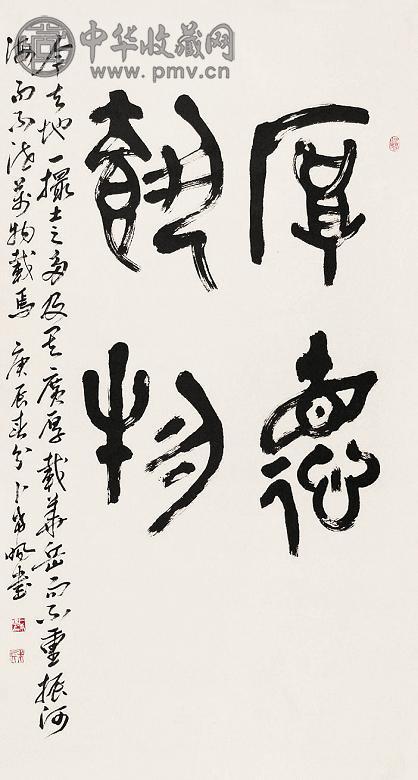 中华收藏网
www.pmv.cn
厚德
載物
今夫地一撮土之多及其廣厚載華岳而不重振河
海而不洩萬物載焉 庚辰春分 卜希暘書